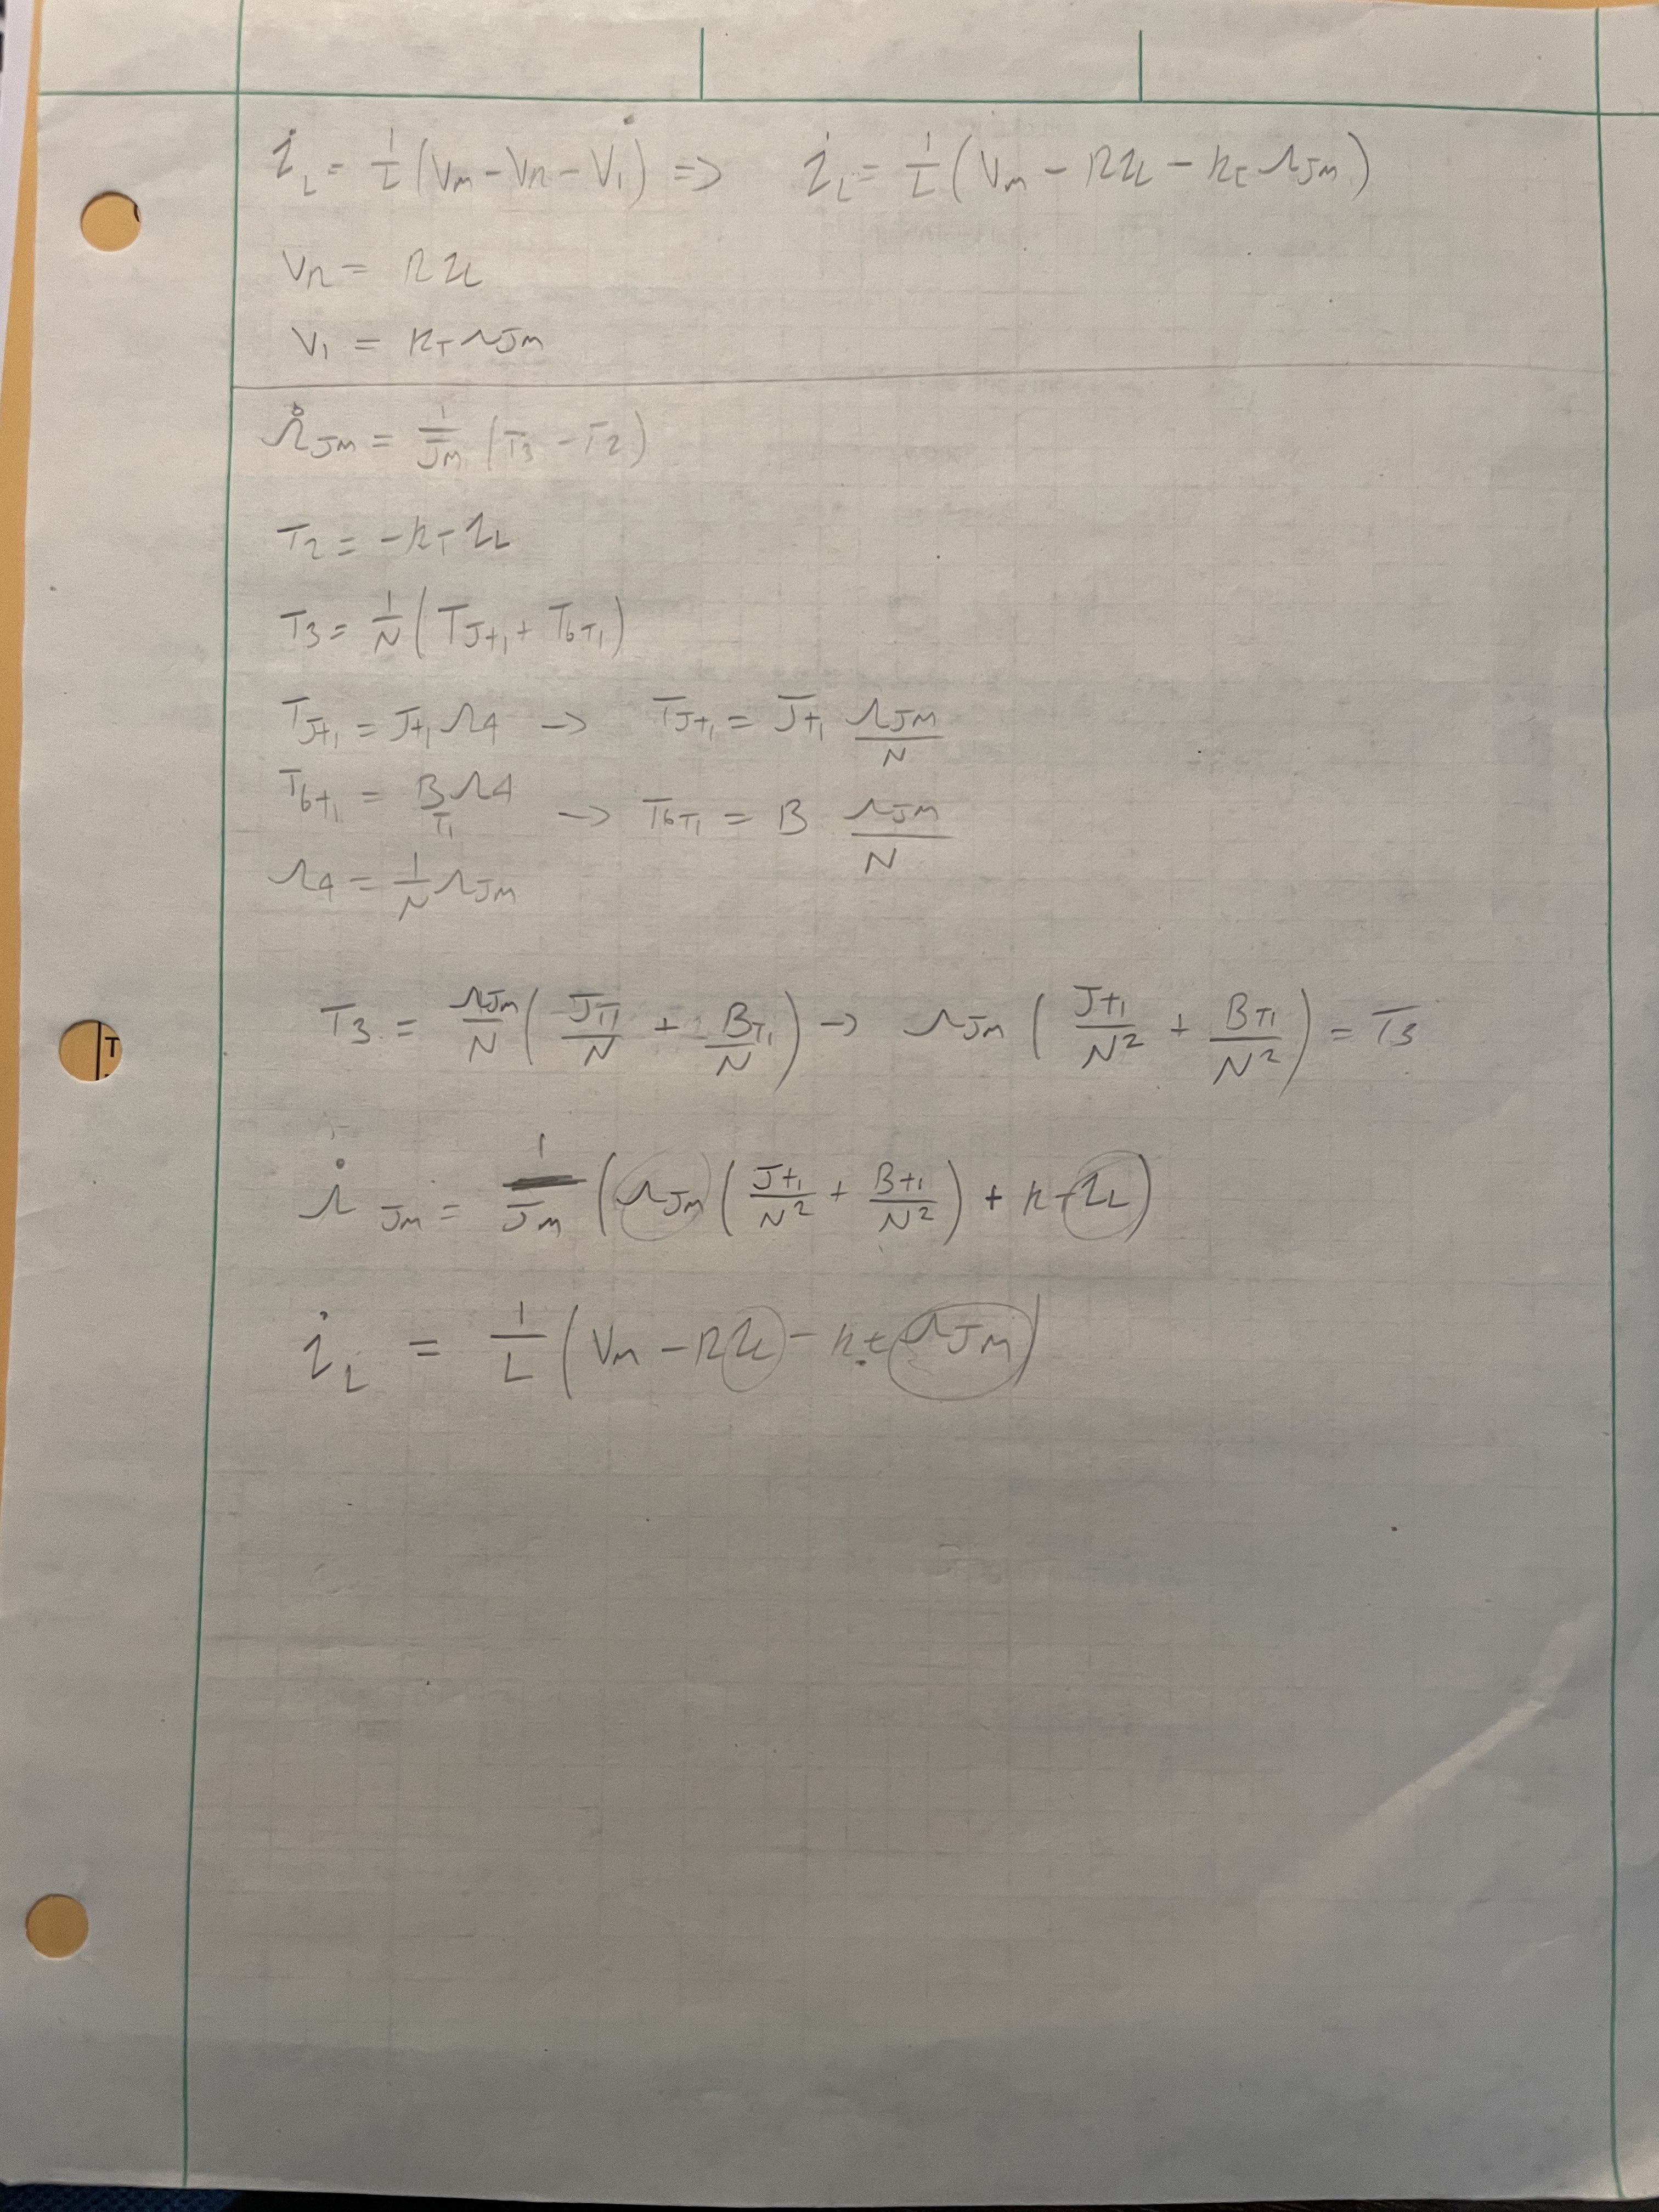 i̇_L = 1/L (V_m - V_R - V_1) => i̇_L = 1/L (V_m - R i_L - k_t Ω_Jm)
V_R = R i_L
V_1 = K_T Ω_Jm
Ω̇_Jm = 1/J_m (T_3 - T_2)
T_2 = -K_T i_L
T_3 = 1/N (T_Jt1 + T_bT1)
T_Jt1 = J_t1 Ω_4 -> T_Jt1 = J_t1 Ω_Jm/N
T_bt1 = B_T1 Ω_4 -> T_bT1 = B Ω_Jm/N
Ω_4 = 1/N Ω_Jm
T_3 = Ω_Jm/N (J_T1/N + B_T1/N) -> Ω_Jm (J_t1/N² + B_T1/N²) = T_3
Ω̇_Jm = 1/J_m (Ω_Jm (J_t1/N² + B_t1/N²) + K_T i_L)
i̇_L = 1/L (V_m - R i_L - k_t Ω_Jm)
T